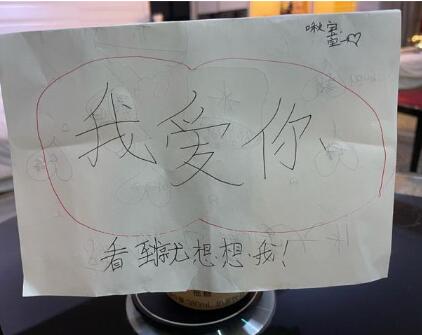 我爱你
看到就想想我!